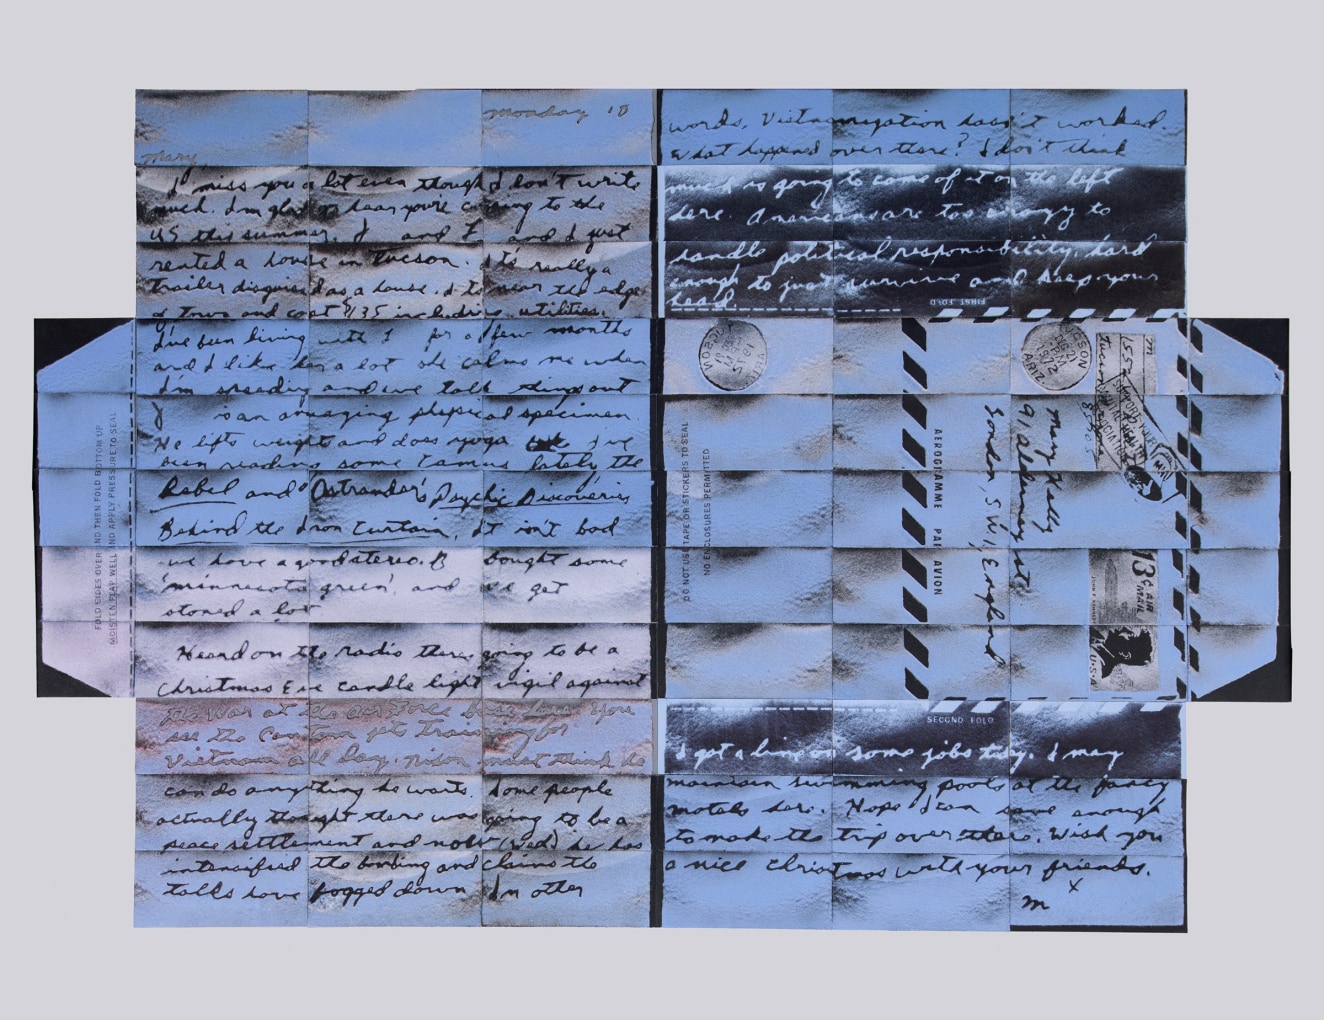 Monday 18
Mary,
I miss you a lot even though I don't write
much. I'm glad to hear you're coming to the
US this summer. J and E and I just
rented a house in Tucson. It's really a
trailer disguised as a house. It's near the edge
of town and cost $135 including utilities.
I've been living with J for a few months
and I like her a lot she calms me when
I'm speeding and we talk things out
J is an amazing physical specimen.
He lifts weights and does yoga I've
been reading some Camus lately the
Rebel and Ostrander's Psychic Discoveries
Behind the Iron Curtain, It isn't bad
we have a good stereo. B bought some
'minnesota green', and we get
stoned a lot
Heard on the radio there's going to be a
Christmas Eve candle light vigil against
the War at the Air Force base here. You
see the Cambodia jets training for
Vietnam all day. Nixon must think he
can do anything he wants. Some people
actually thought there was going to be a
peace settlement and now (Wed) he has
intensified the bombing and claims the
talks have bogged down In other
words, Vietnamization hasn't worked
What happened over there? I don't think
much is going to come of it on the left
here. Americans are too crazy to
handle political responsibility, hard
enough to just survive and keep your
head.
FIRST FOLD
TUCSON
ARIZ
PM
1972
TUCSON
ARIZ
PM
1972
Mary Kelly
London SW1, England
AEROGRAMME PAR AVION
DO NOT USE TAPE OR STICKERS TO SEAL
NO ENCLOSURES PERMITTED
13¢
AIR
MAIL
JOHN KENNEDY
USA
FOLD SIDES OVER AND THEN FOLD BOTTOM UP
MOISTEN FLAP WELL AND APPLY PRESSURE TO SEAL
SECOND FOLD
I got a line on some jobs today. I may
maintain swimming pools at the fancy
motels here. Hope I can save enough
to make the trip over there. Wish you
a nice Christmas with your friends.
x
M